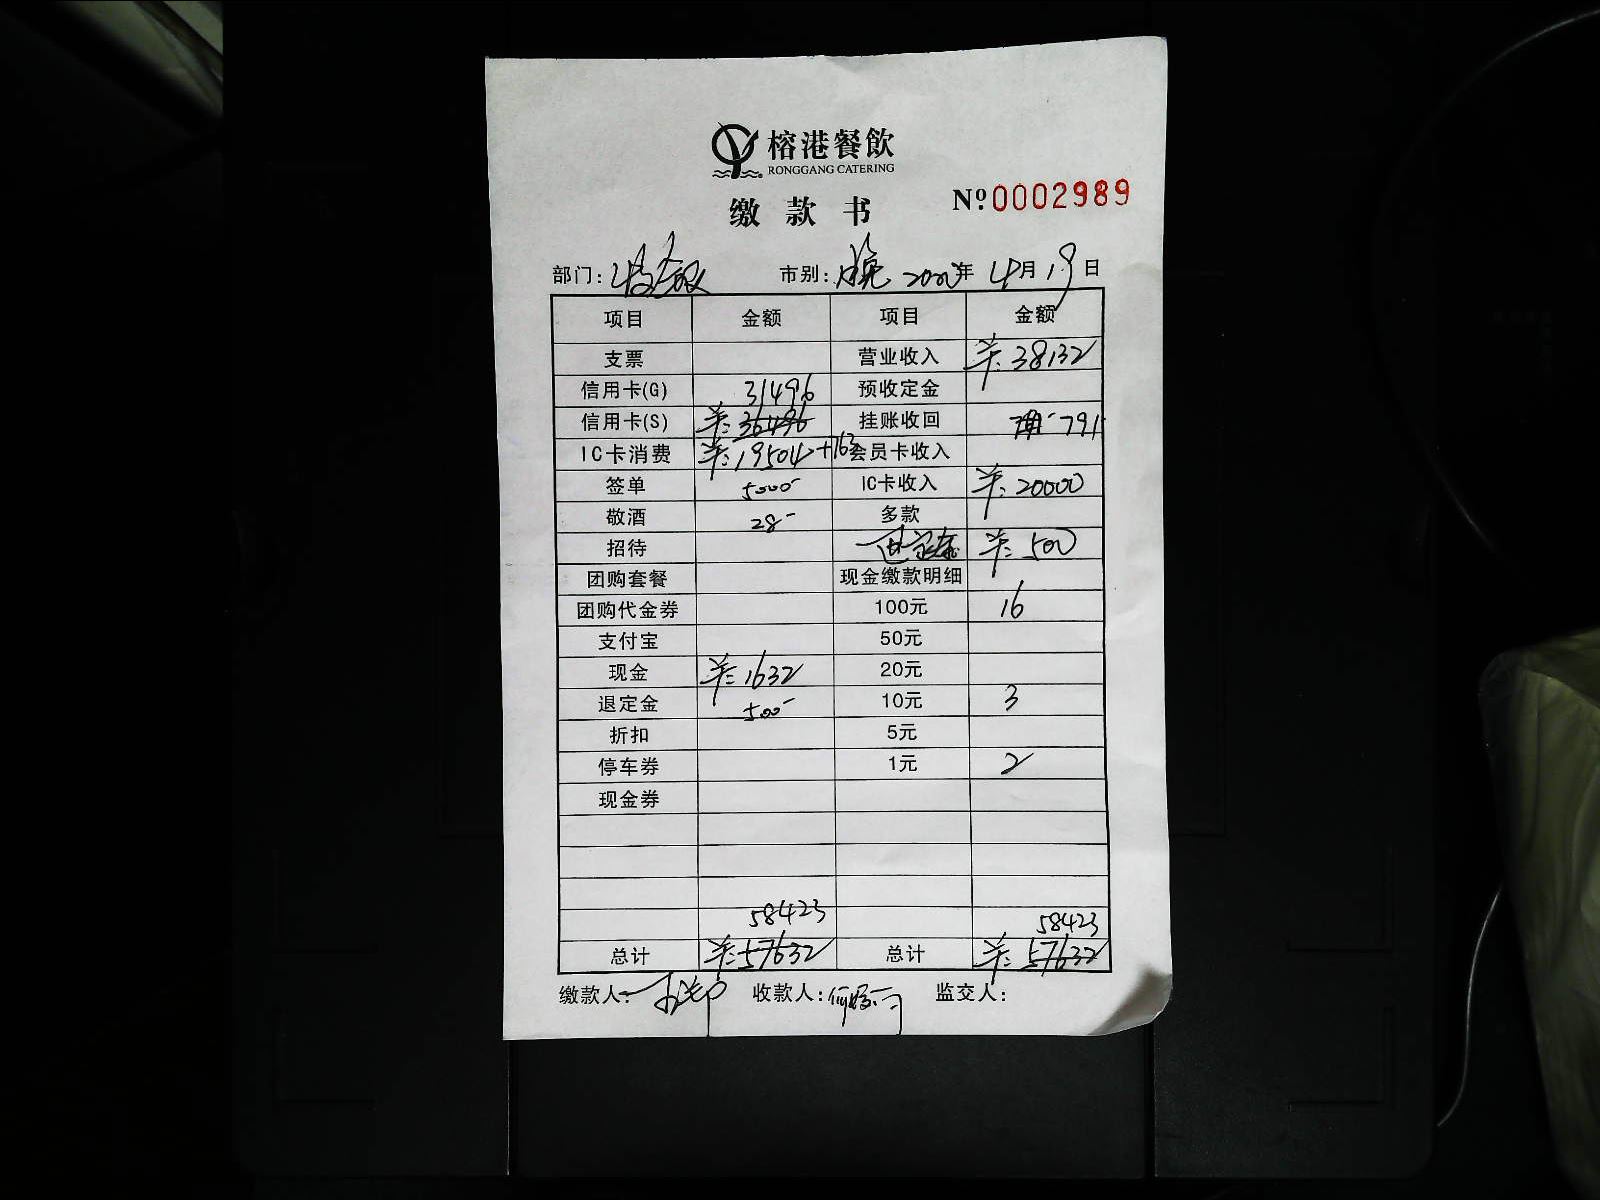 榕港餐飲
RONGGANG CATERING
缴款书 Nº:0002989
部门: 市别:晚 年 4月19日
项目 金额 项目 金额
支票 营业收入 ¥:38132
信用卡(G) 31496 预收定金
信用卡(S) ¥:36496 挂账收回 791
IC卡消费 ¥:19504+763 会员卡收入
签单 5000- IC卡收入 ¥:20000
敬酒 28- 多款
招待 ¥:500
团购套餐 现金缴款明细
团购代金券 100元 16
支付宝 50元
现金 ¥:1632 20元
退定金 500- 10元 3
折扣 5元
停车券 1元 2
现金券
58423 58423
总计 ¥:57632 总计 ¥:57632
缴款人: 收款人: 监交人: